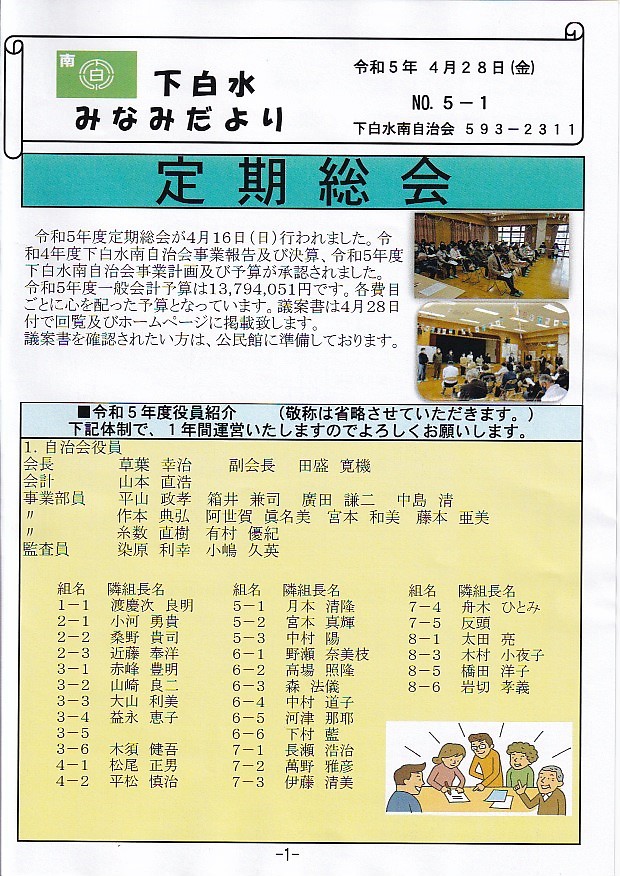 南
白
下白水
みなみだより
令和５年 ４月２８日(金)
NO. ５－１
下白水南自治会 ５９３－２３１１
定期総会
令和5年度定期総会が4月16日(日)行われました。令
和4年度下白水南自治会事業報告及び決算、令和5年度
下白水南自治会事業計画及び予算が承認されました。
令和5年度一般会計予算は13,794,051円です。各費目
ごとに心を配った予算となっています。議案書は4月28日
付で回覧及びホームページに掲載致します。
議案書を確認されたい方は、公民館に準備しております。
■令和５年度役員紹介 （敬称は省略させていただきます。）
下記体制で、１年間運営いたしますのでよろしくお願いします。
1. 自治会役員
会長 草葉 幸治 副会長 田盛 寛機
会計 山本 直浩
事業部員 平山 政孝 箱井 兼司 廣田 謙二 中島 清
〃 作本 典弘 阿世賀 眞名美 宮本 和美 藤本 亜美
〃 糸数 直樹 有村 優紀
監査員 染原 利幸 小嶋 久英
組名 隣組長名
1－1 渡慶次 良明
2－1 小河 勇貴
2－2 桑野 貴司
2－3 近藤 奉洋
3－1 赤峰 豊明
3－2 山崎 良二
3－3 大山 利美
3－4 益永 恵子
3－5
3－6 木須 健吾
4－1 松尾 正男
4－2 平松 慎治
組名 隣組長名
5－1 月本 清隆
5－2 宮本 真輝
5－3 中村 陽
6－1 野瀬 奈美枝
6－2 高場 照隆
6－3 森 法儀
6－4 中村 道子
6－5 河津 那耶
6－6 下村 藍
7－1 長瀬 浩治
7－2 萬野 雅彦
7－3 伊藤 清美
組名 隣組長名
7－4 舟木 ひとみ
7－5 反頭
8－1 太田 亮
8－3 木村 小夜子
8－5 橋田 洋子
8－6 岩切 孝義
-1-